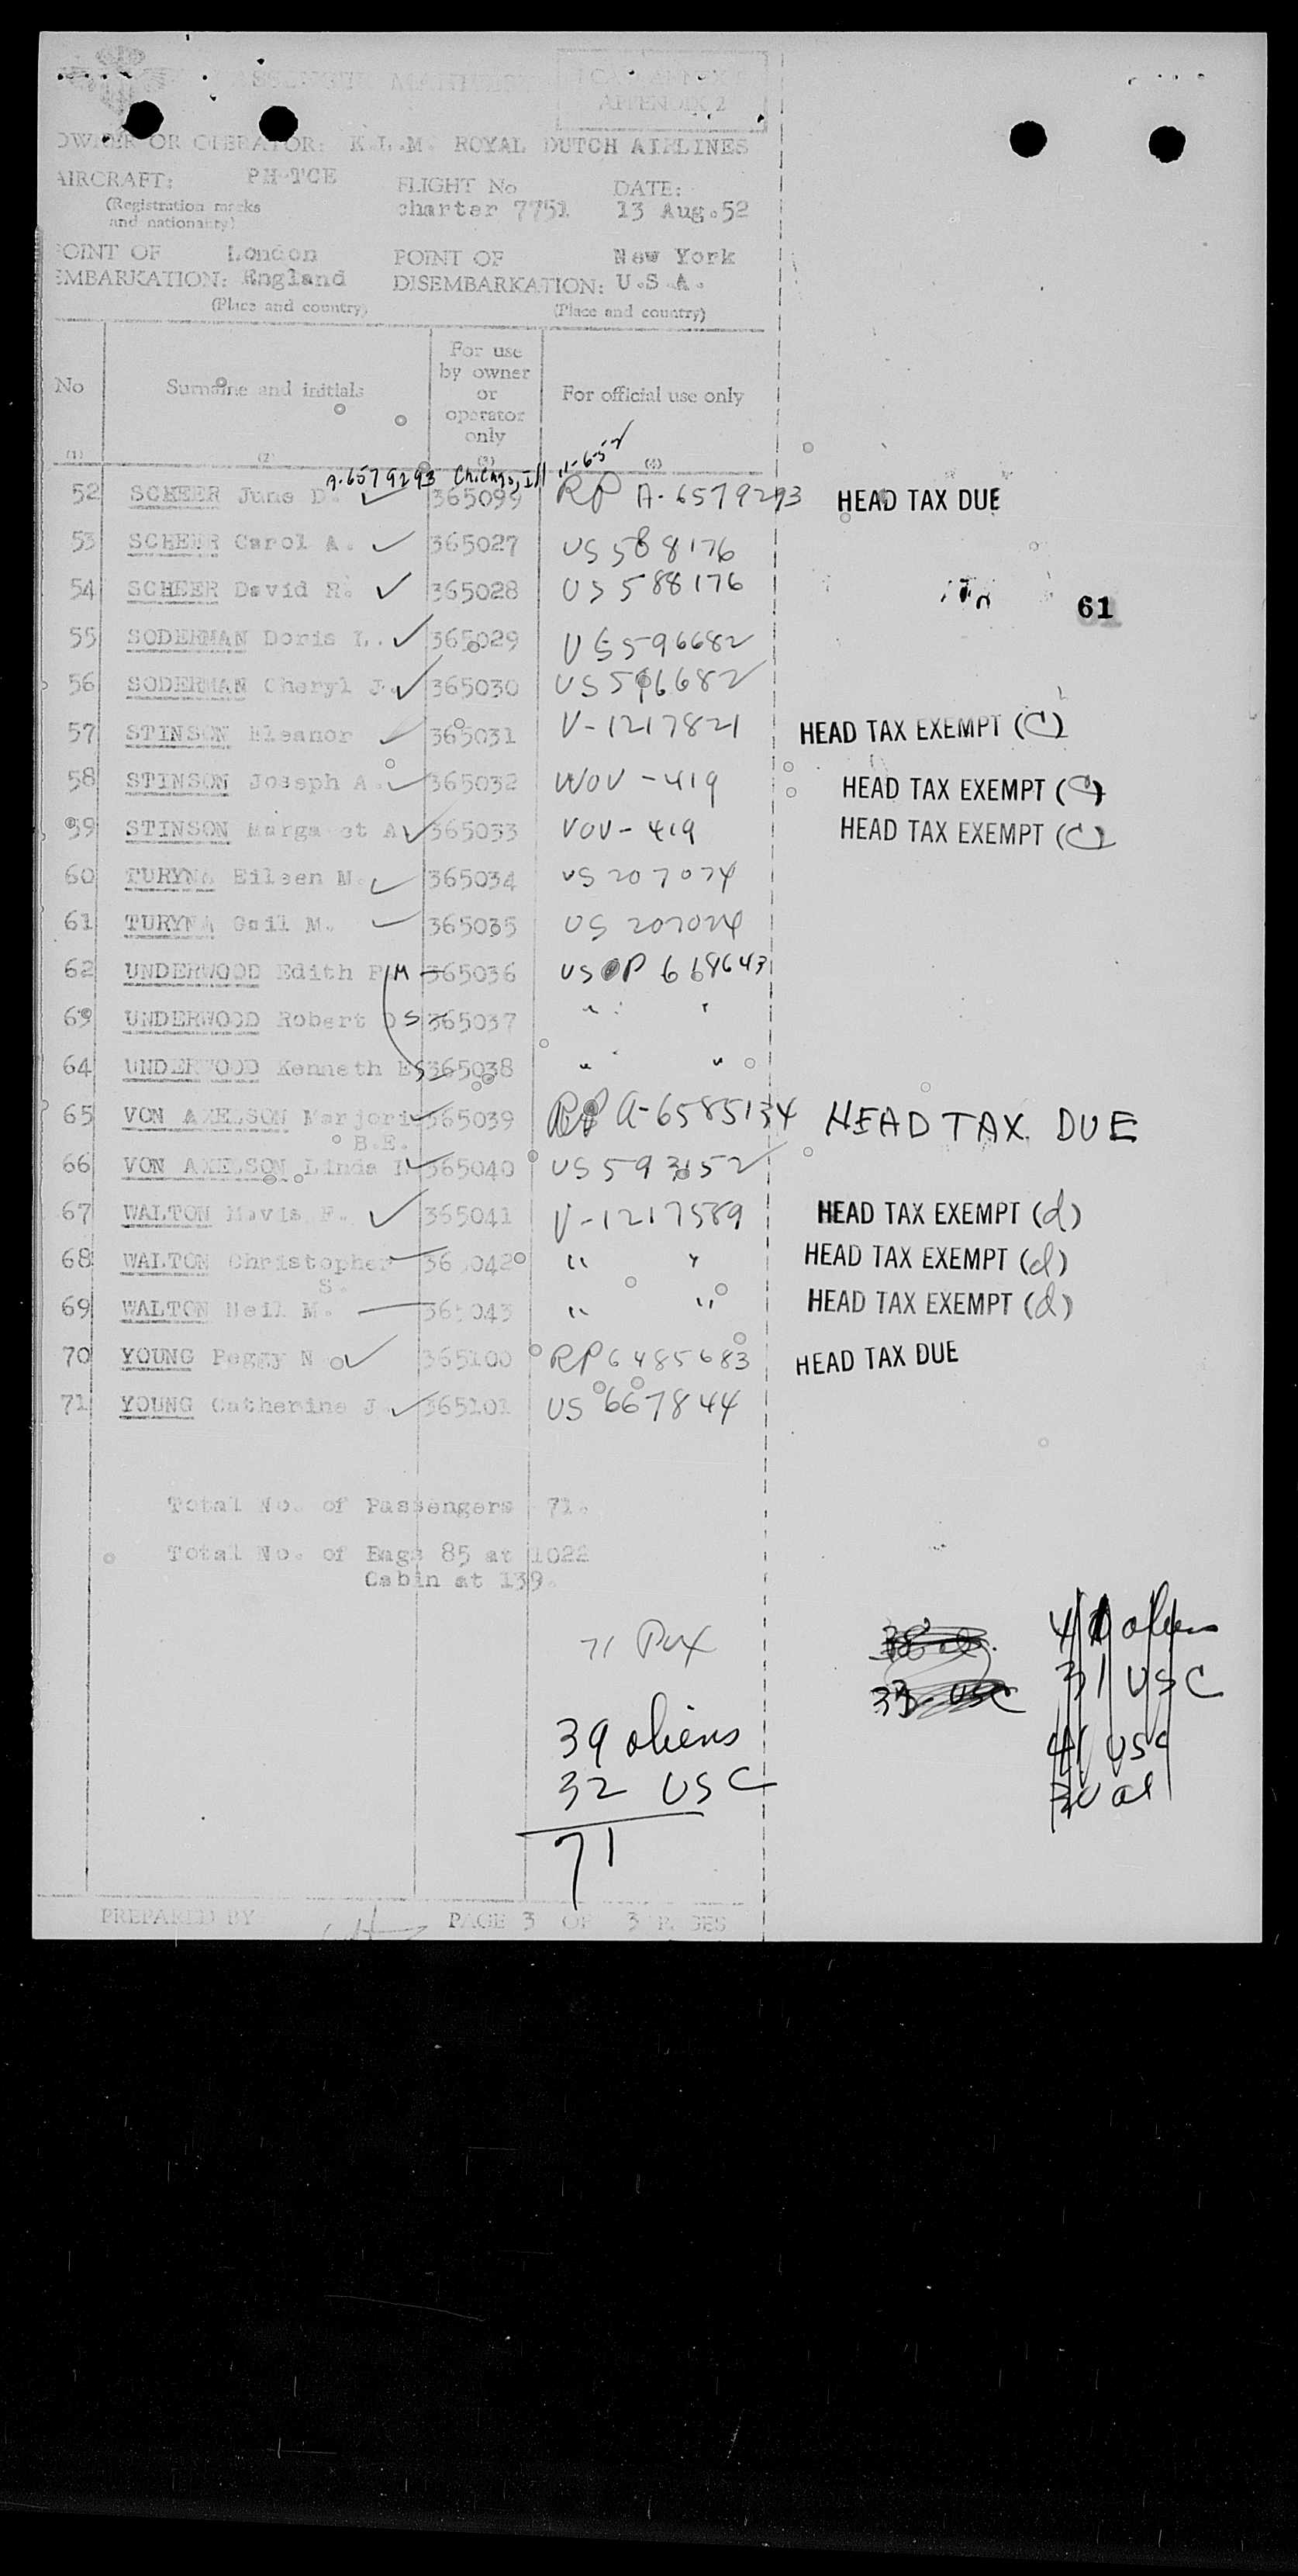 PASSENGER MANIFEST
APPENDIX 2
OWNER OR OPERATOR: K.L.M. ROYAL DUTCH AIRLINES
AIRCRAFT: PH-TCE FLIGHT No DATE:
(Registration marks charter 7751 13 Aug.52
and nationality)
POINT OF London POINT OF New York
EMBARKATION: England DISEMBARKATION: U.S.A.
(Place and country) (Place and country)
No Surname and initials For use by owner or operator only For official use only
(1) (2) (3) (4)
A-6579293 Chicago, Ill
52 SCHEER June D. 365099 RP A-6579293 HEAD TAX DUE
53 SCHEER Carol A. 365027 US 588176
54 SCHEER David R. 365028 US 588176
61
55 SODERMAN Doris L. 365029 US 596682
56 SODERMAN Cheryl J. 365030 US 596682
57 STINSON Eleanor 365031 V-1217821 HEAD TAX EXEMPT (C)
58 STINSON Joseph A. 365032 VOV-419 HEAD TAX EXEMPT (C)
59 STINSON Margaret A 365033 VOV-419 HEAD TAX EXEMPT (C)
60 TURYNA Eileen M. 365034 US 207074
61 TURYNA Gail M. 365035 US
62 UNDERWOOD Edith M 365036 US P 668643
63 UNDERWOOD Robert S 365037 " "
64 UNDERWOOD Kenneth E S 365038 " "
65 VON AXELSON Marjori 365039 RP A-6585134 HEAD TAX DUE
B.E.
66 VON AXELSON Linda 365040 US 593152
67 WALTON Mavis F. 365041 V-1217589 HEAD TAX EXEMPT (d)
68 WALTON Christopher 365042 " " HEAD TAX EXEMPT (d)
S.
69 WALTON Neil M. 365043 " " HEAD TAX EXEMPT (d)
70 YOUNG Peggy N 365100 RP 6485683 HEAD TAX DUE
71 YOUNG Catherine J. 365101 US 667844
Total No. of Passengers 71.
Total No. of Bags 85 at 1022
Cabin at 139.
71 Pax
41 aliens
31 USC
39 aliens
41 USC
32 USC
71
PREPARED BY PAGE 3 OF 3 PAGES